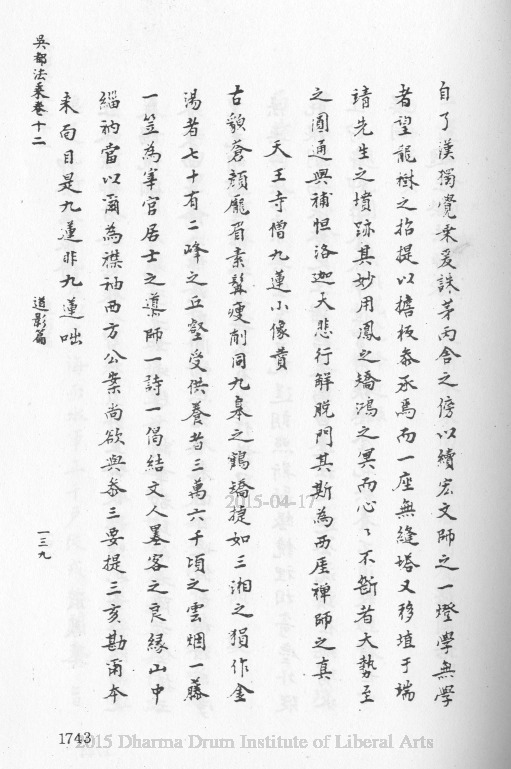 自了漢獨覺乘爰誅茅丙舍之傍以續宏文師之一燈學無學
者望龍樹之招提以擔板忝承焉而一座無縫塔又移埴于瑞
靖先生之墳跡其妙用鳳之矯鴻之冥而心心不斷者大勢至
之圓通與補怛洛迦大悲行解脫門其斯為西厓禪師之真
天王寺僧九蓮小像贊
古貌蒼顏龐眉素髯瘦削同九皋之鶴矯捷如三湘之猨作金
湯者七十有二峰之丘壑受供養者三萬六千頃之雲烟一藤
一笠為宰官居士之導師一詩一偈結文人墨客之良緣山中
緇衲當以爾為襟袖西方公案尚欲與參三要提三亥勘爾本
來面目是九蓮非九蓮咄
吳都法乘卷十二
道影篇
一三九
1743
2015-04-17
2015 Dharma Drum Institute of Liberal Arts